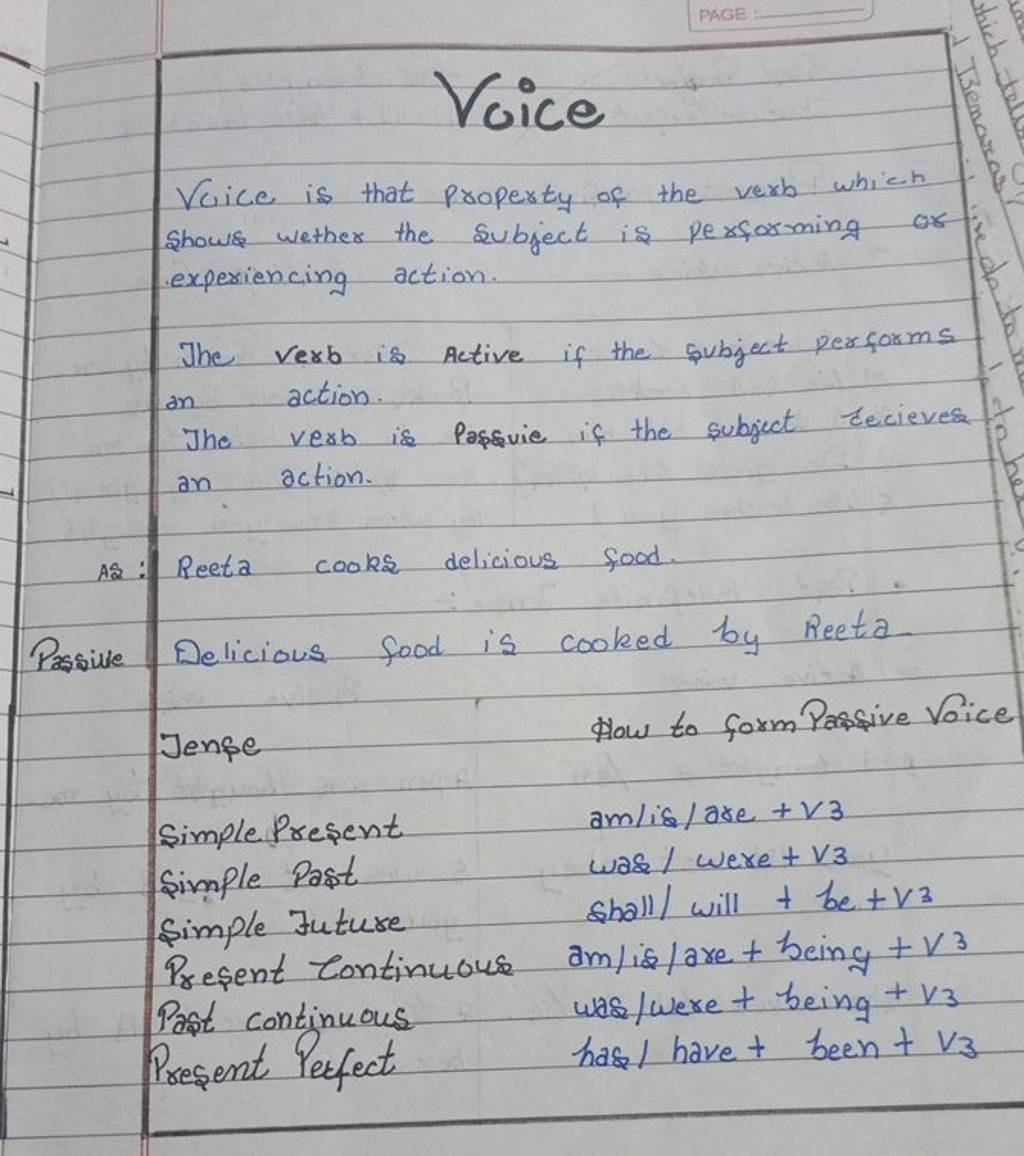 PAGE :
Voice
Voice is that property of the verb which
shows wether the subject is performing or
experiencing action.
The verb is Active if the subject performs
an action.
The verb is Passvie if the subject recieves
an action.
As : Reeta cooks delicious food.
Passive Delicious food is cooked by Reeta
Tense How to form Passive Voice
Simple Present am/is/are + V3
Simple Past was/ were + V3
Simple Future shall/ will + be + V3
Present Continuous am/is/are + being + V3
Past continuous was/were + being + V3
Present Perfect has/ have + been + V3
which tells